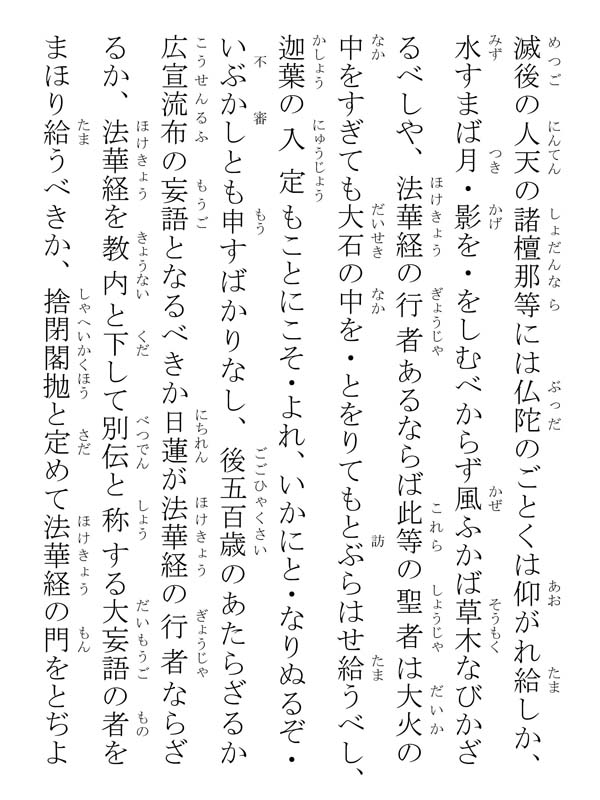 滅後の人天の諸檀那等には仏陀のごとくは仰がれ給しか、
水すまば月・影を・をしむべからず風ふかば草木なびかざ
るべしや、法華経の行者あるならば此等の聖者は大火の
中をすぎても大石の中を・とをりてもとぶらはせ給うべし、
迦葉の入定もことにこそ・よれ、いかにと・なりぬるぞ・
いぶかしとも申すばかりなし、後五百歳のあたらざるか
広宣流布の妄語となるべきか日蓮が法華経の行者ならざ
るか、法華経を教内と下して別伝と称する大妄語の者を
まほり給うべきか、捨閉閣抛と定めて法華経の門をとぢよ